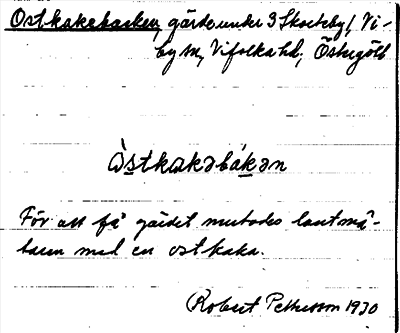 Ostkakebacken, gärde under 3 Skorteby, Vi-
by sn, Vifolka hd, Östergötl
òstkakəbákən
För att få gärdet mutades lantmä-
taren med en ostkaka.
Robert Pettersson 1930